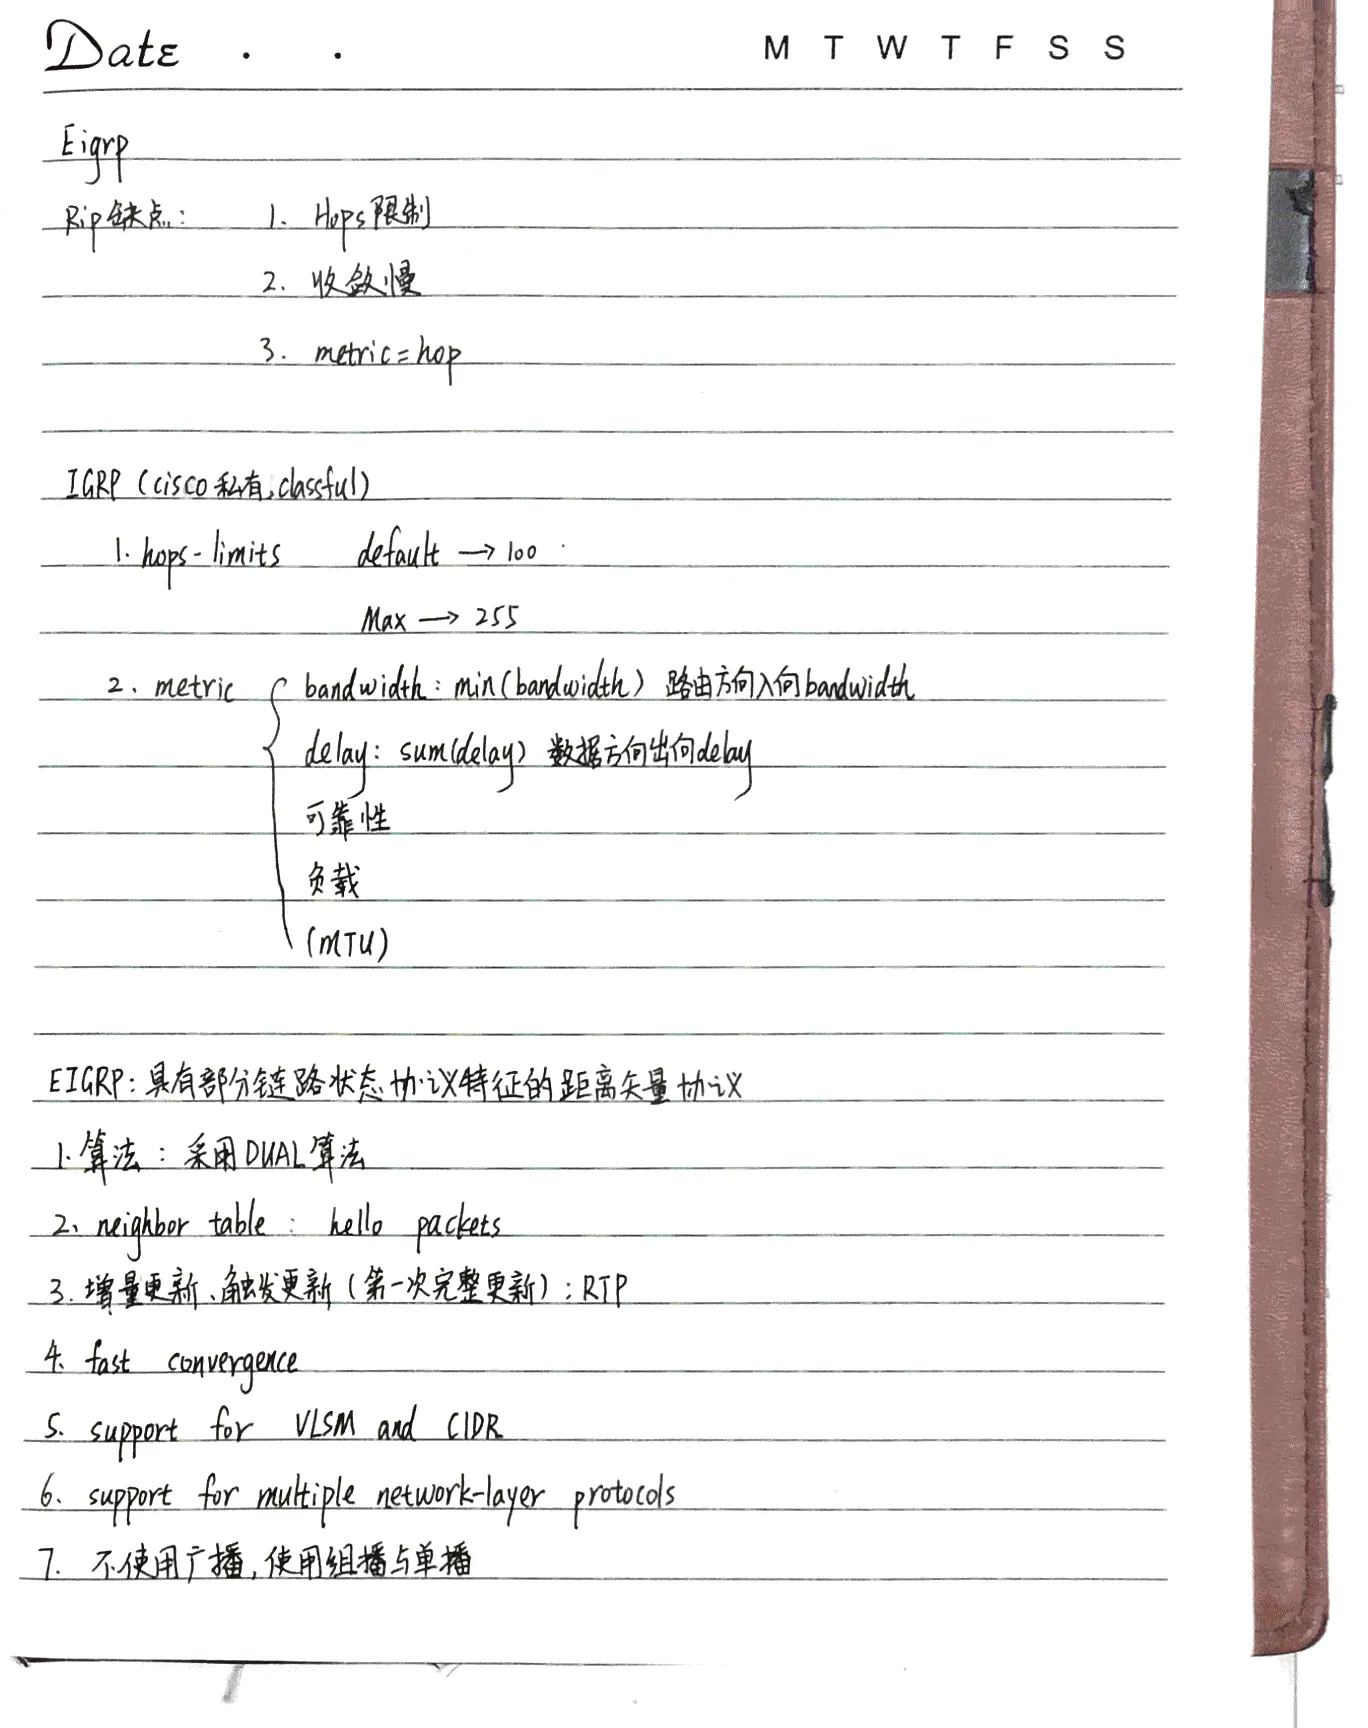 Date . . M T W T F S S
Eigrp
Rip缺点: 1. Hops限制
2. 收敛慢
3. metric=hop
IGRP (cisco私有,classful)
1. hops-limits default → 100
Max → 255
2、metric { bandwidth: min(bandwidth) 路由方向入向bandwidth
delay: sum(delay) 数据方向出向delay
可靠性
负载
(MTU)
EIGRP: 具有部分链路状态协议特征的距离矢量协议
1. 算法: 采用DUAL算法
2、neighbor table: hello packets
3. 增量更新、触发更新(第一次完整更新): RTP
4. fast convergence
5. support for VLSM and CIDR
6. support for multiple network-layer protocols
7. 不使用广播,使用组播与单播